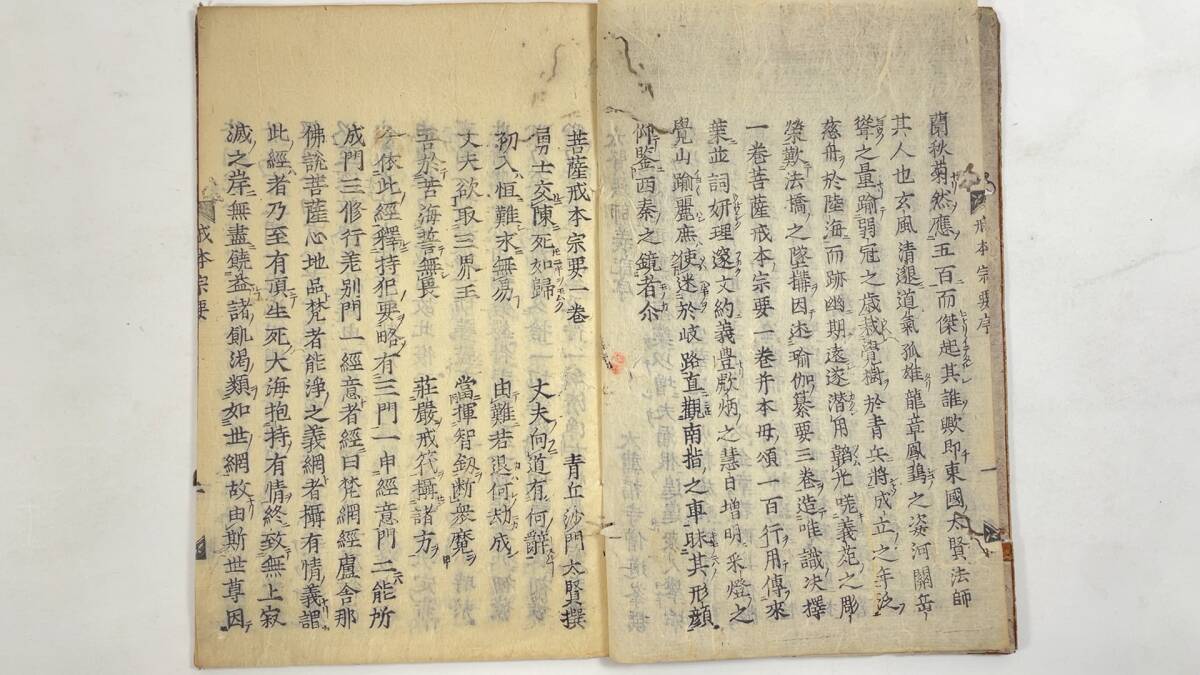 戒本宗要序 一
蘭秋菊然應五百而傑起其誰歟即東國太賢法師
其人也玄風清邈道氣孤雄龍章鳳之姿河開岳
聳之量踰弱冠之歳栽覺樹於青丘將成立之年泛
慈舟於陸海而跡幽期遠遂潜用韜光嗟義菀之彫
榮歎法橋之墜構因述瑜伽纂要三卷造唯識决擇
一卷菩薩戒本宗要一卷并本母頌一百行用傳來
葉並詞妍理邃文約義豊猒炳之慧日増明采燈之
覺山踰麗庶使迷於岐路直觀南指之車昧其形顔
仰鑒西秦之鏡者尒
菩薩戒本宗要一卷 青丘沙門太賢撰
勇士交陳死如歸 丈夫向道有何辭
初入恒難永無易 由難若退何劫成
丈夫欲取三界王 當揮智釼断衆魔
吾於苦海誓無畏 莊嚴戒筏攝諸方
今依此經釋持犯要略有三門一申經意門二能所
成門三修行差別門一經意者經曰梵網經盧舎那
佛説菩薩心地品梵者能浄之義網者攝有情義謂
此經者乃至有頂生死大海抱持有情終致無上寂
滅之岸無盡饒益諸飢渇類如世網故由斯世尊因
戒本宗要 一